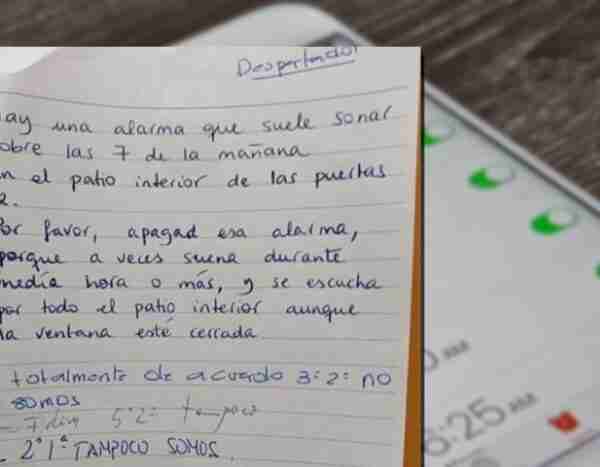 Despertador
ay una alarma que suele sonar
obre las 7 de la mañana
n el patio interior de las puertas
2.
or favor, apagad esa alarma,
porque a veces suena durante
media hora o más, y se escucha
por todo el patio interior aunque
la ventana esté cerrada
totalmente de acuerdo 3º 2ª no
somos
5º 2ª tampoco
- 2º 1ª TAMPOCO SOMOS.
AM
6:25 AM